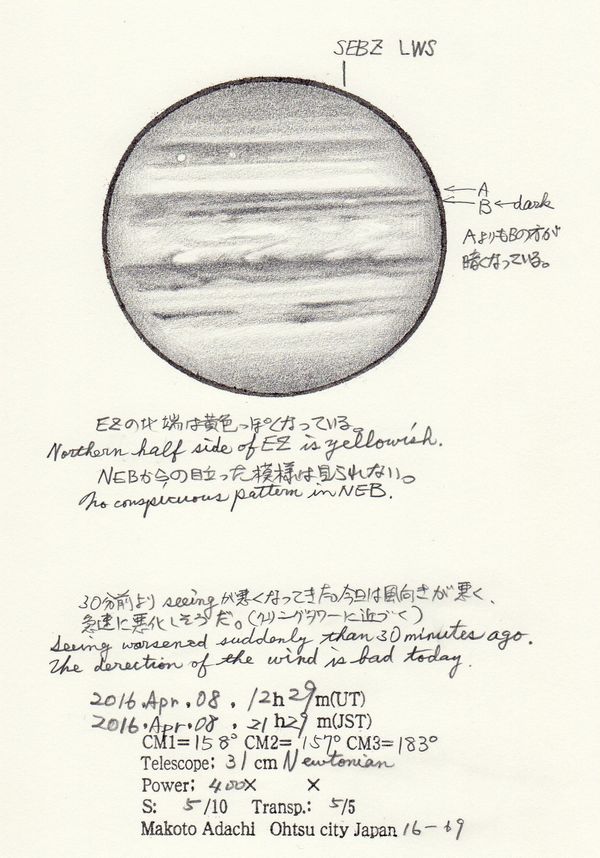 SEBZ LWS
A
B ← dark
AよりもBの方が
暗くなっている。
EZの北端は黄色っぽくなっている。
Northern half side of EZ is yellowish.
NEBか今の目立った模様は見られない。
No conspicuous pattern in NEB.
30分前より seeing が悪くなってきた。今日は風向きが悪く、
急速に悪化しそうだ。(クリーンタワーに近づく)
Seeing worsened suddenly than 30 minutes ago.
The derection of the wind is bad today.
2016.Apr.08. 12h29m(UT)
2016.Apr.08. 21h29m(JST)
CM1=158° CM2=157° CM3=183°
Telescope: 31 cm Newtonian
Power: 400× ×
S: 5/10 Transp.: 5/5
Makoto Adachi Ohtsu city Japan 16-19